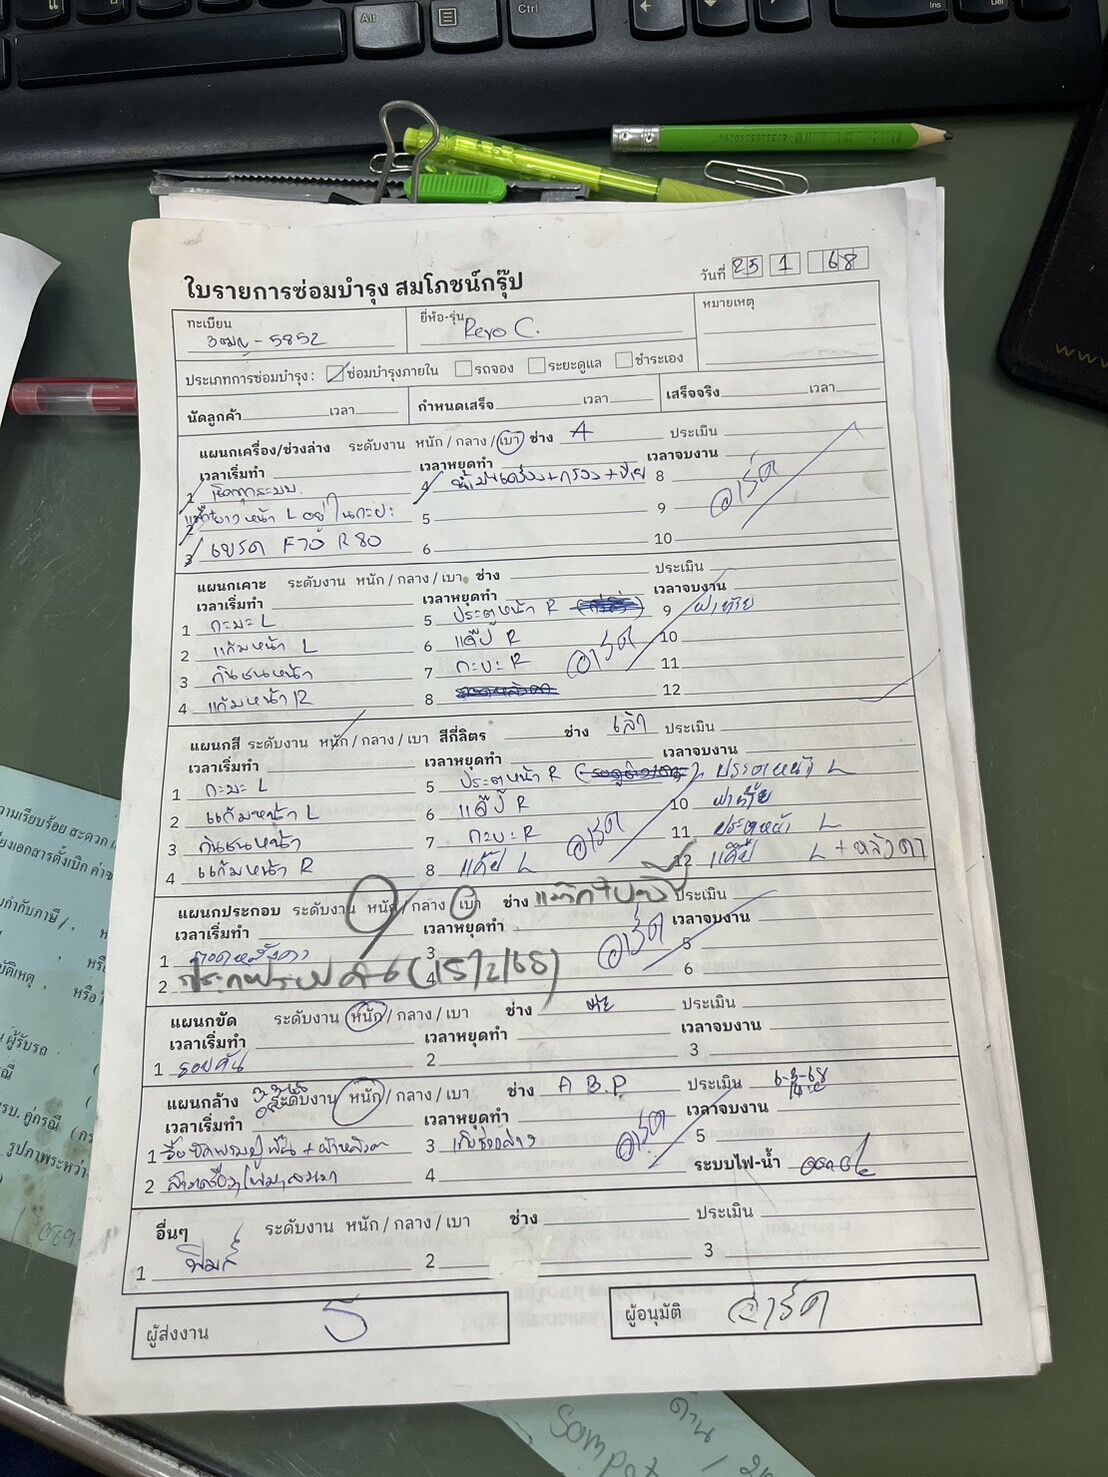 ใบรายการซ่อมบำรุง สมโภชน์กรุ๊ป
วันที่ 25 1 68
ทะเบียน
ยี่ห้อ-รุ่น Revo C.
หมายเหตุ
5852
ประเภทการซ่อมบำรุง : ซ่อมบำรุงภายใน รถจอง ระยะดูแล ชำระเอง
นัดลูกค้า เวลา กำหนดเสร็จ เวลา เสร็จจริง เวลา
แผนกเครื่อง/ช่วงล่าง ระดับงาน หนัก / กลาง / เบา ช่าง A ประเมิน
เวลาเริ่มทำ เวลาหยุดทำ เวลาจบงาน
1 เช็คทุกระบบ 4 น้ำมันเครื่อง+กรอง+ 8
2 ยางหน้า L อยู่ในกะบะ 5 9 อาร์ต
3 เบรค F70 R80 6 10
แผนกเคาะ ระดับงาน หนัก / กลาง / เบา ช่าง ประเมิน
เวลาเริ่มทำ เวลาหยุดทำ เวลาจบงาน
1 กะบะ L 5 ประตูหน้า R 9 ฝาท้าย
2 แก้มหน้า L 6 แค๊ป R อาร์ต 10
3 กันชนหน้า 7 กะบะ R 11
4 แก้มหน้า R 8 12
แผนกสี ระดับงาน หนัก / กลาง / เบา สีกี่ลิตร ช่าง ประเมิน
เวลาเริ่มทำ เวลาหยุดทำ เวลาจบงาน
1 กะบะ L 5 ประตูหน้า R ประตูหน้า L
2 แก้มหน้า L 6 แค๊ป R 10 ฝาท้าย
3 กันชนหน้า 7 กะบะ R อาร์ต 11 ประตูหน้า L
4 แก้มหน้า R 8 แค๊ป L 12 แค๊ป L + หลังคา
แผนกประกอบ ระดับงาน หนัก / กลาง / เบา ช่าง ประเมิน
เวลาเริ่มทำ เวลาหยุดทำ เวลาจบงาน
1 ถอดหลังคา 3 อาร์ต 5
2 4 (15/2/68) 6
แผนกขัด ระดับงาน หนัก / กลาง / เบา ช่าง ประเมิน
เวลาเริ่มทำ เวลาหยุดทำ เวลาจบงาน
1 รอบคัน 2 3
แผนกล้าง ระดับงาน หนัก / กลาง / เบา ช่าง A B.P. ประเมิน 6-3-68
เวลาเริ่มทำ เวลาหยุดทำ เวลาจบงาน
1 3 เก็บช่วงล่าง อาร์ต 5
2 4 ระบบไฟ-น้ำ
อื่นๆ ระดับงาน หนัก / กลาง / เบา ช่าง ประเมิน
1 ฟิมส์ 2 3
ผู้ส่งงาน 5
ผู้อนุมัติ อาร์ต